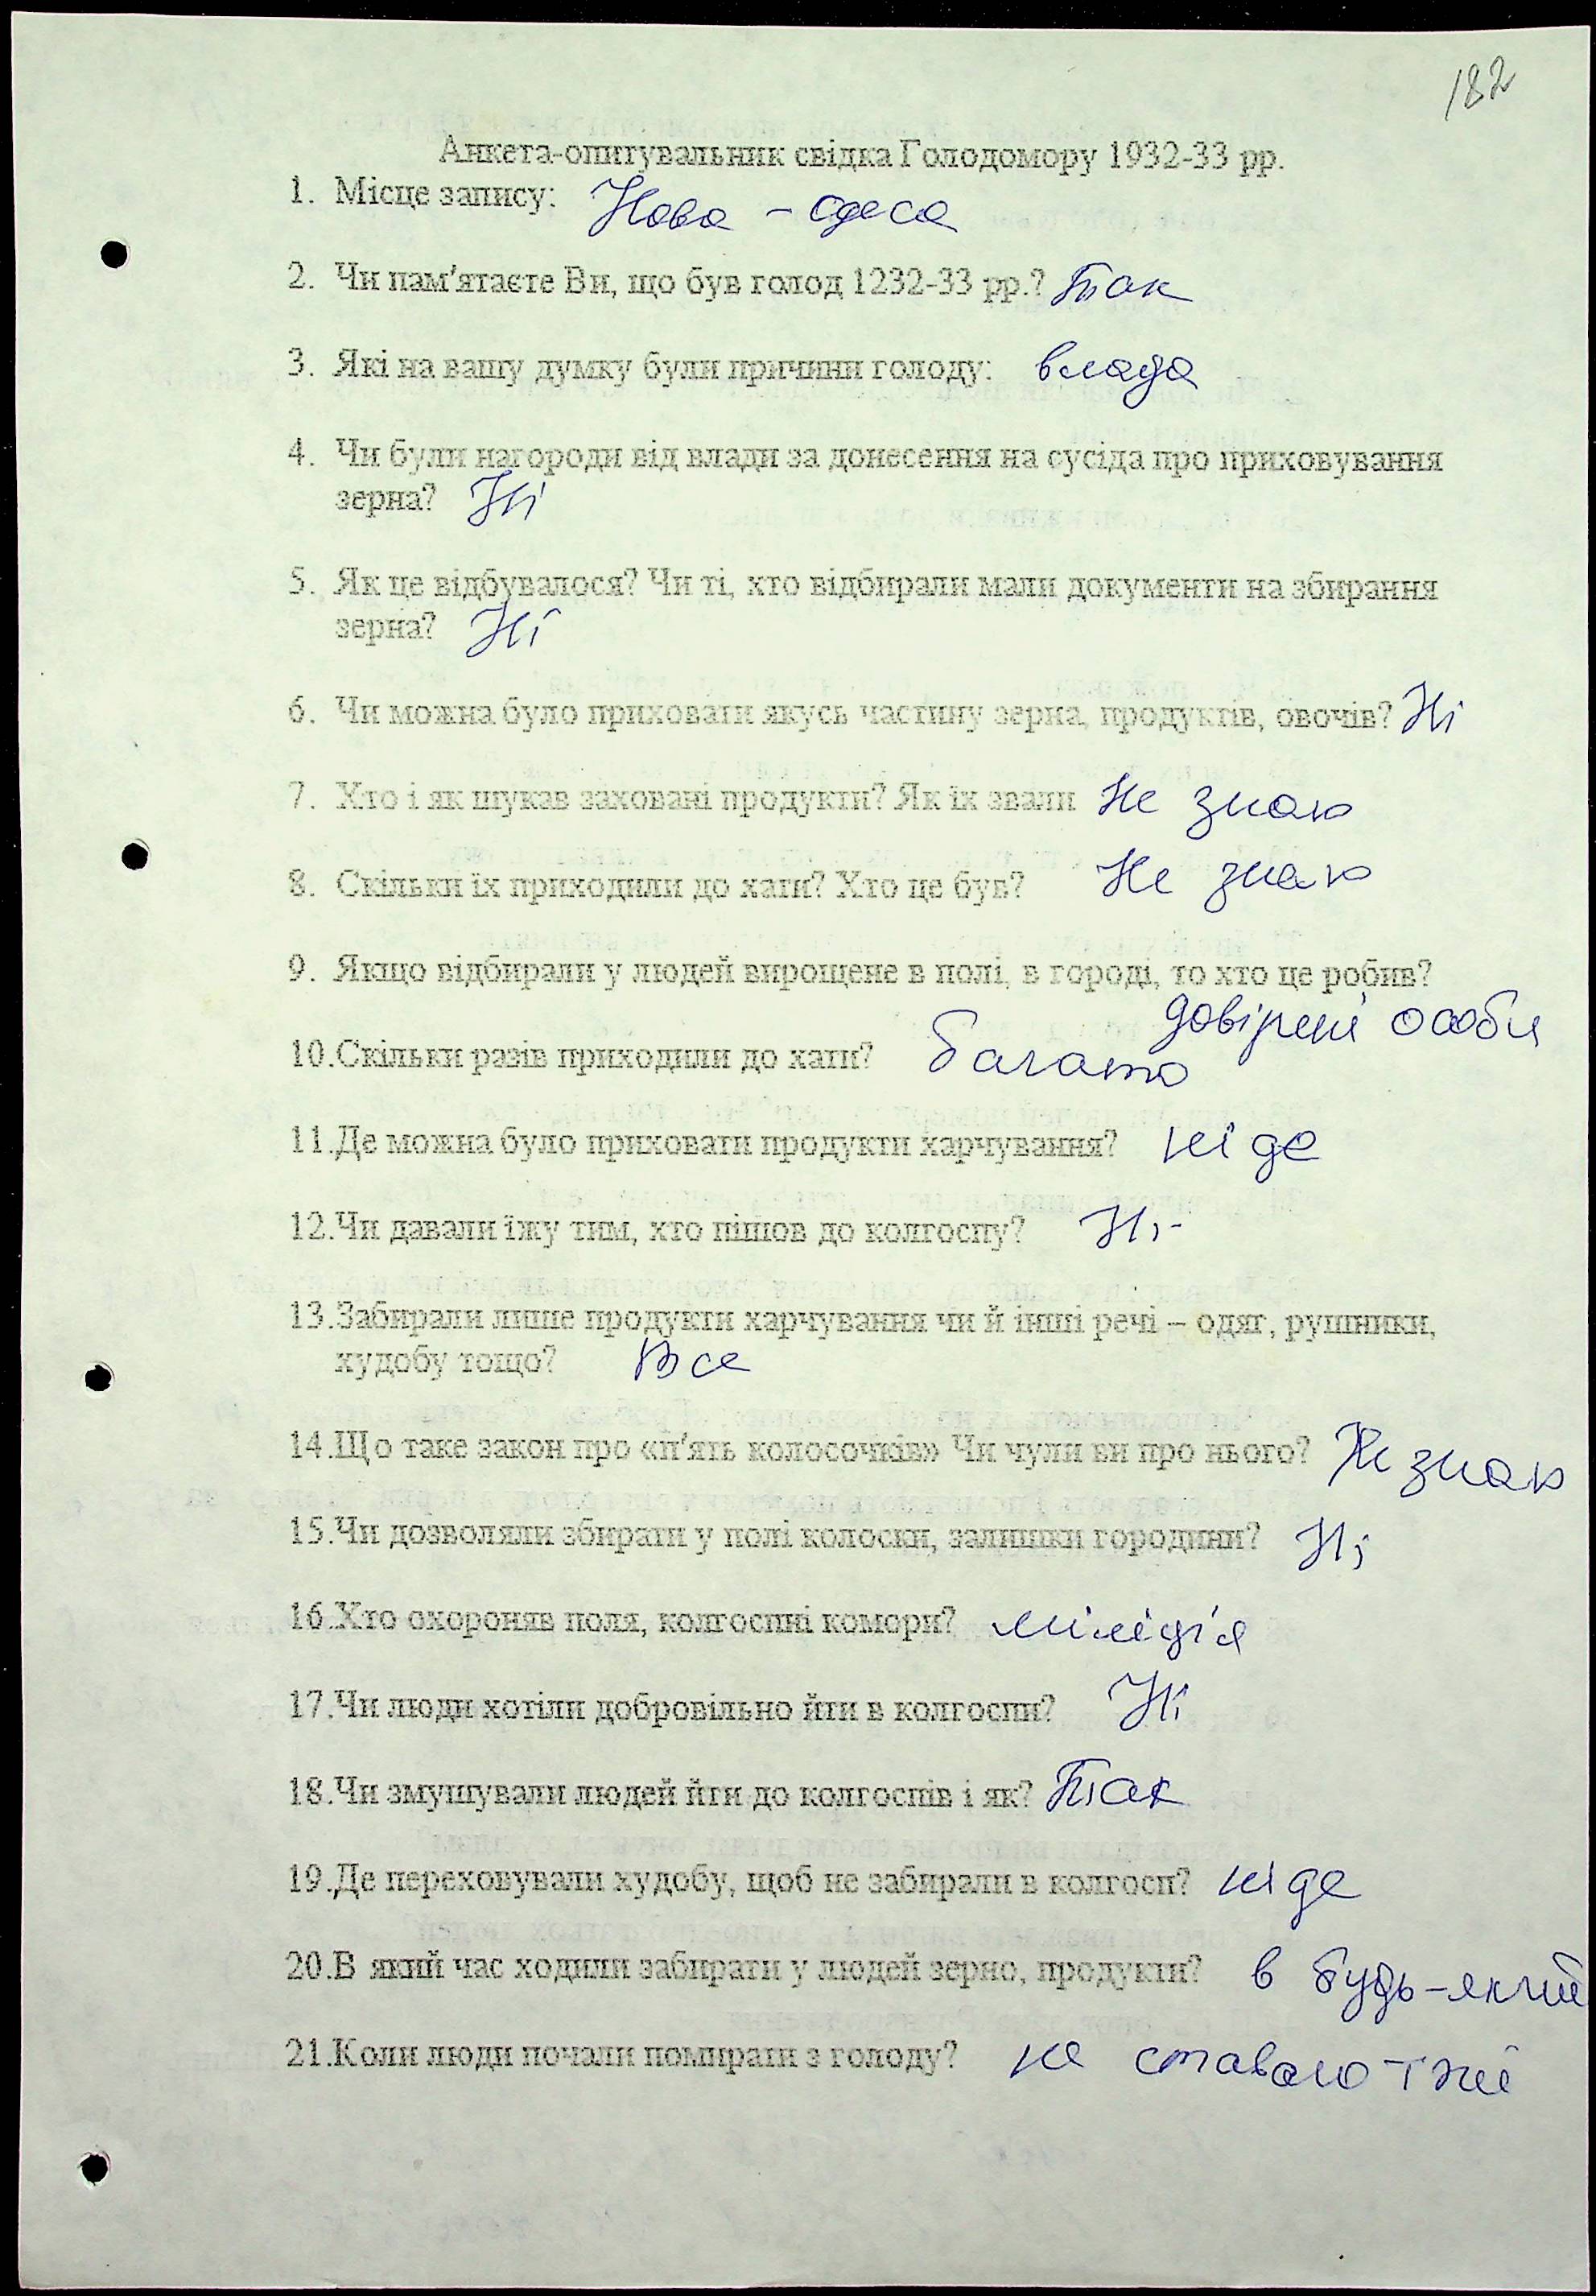 182
Анкета-опитувальник свідка Голодомору 1932-33 рр.
1. Місце запису: Нова - Одеса
2. Чи пам'ятаєте Ви, що був голод 1232-33 рр.? Так
3. Які на вашу думку були причини голоду: влада
4. Чи були нагороди від влади за донесення на сусіда про приховування
зерна? Ні
5. Як це відбувалося? Чи ті, хто відбирали мали документи на збирання
зерна? Ні
6. Чи можна було приховати якусь частину зерна, продуктів, овочів? Ні
7. Хто і як шукав заховані продукти? Як їх звали Не знаю
8. Скільки їх приходили до хати? Хто це був? Не знаю
9. Якщо відбирали у людей вирощене в полі, в городі, то хто це робив?
довірені особи
10.Скільки разів приходили до хати? багато
11.Де можна було приховати продукти харчування? ні де
12.Чи давали їжу тим, хто пішов до колгоспу? Ні-
13.Забирали лише продукти харчування чи й інші речі – одяг, рушники,
худобу тощо? Все
14.Що таке закон про «п'ять колосочків» Чи чули ви про нього? Не знаю
15.Чи дозволяли збирати у полі колоски, залишки городини? Ні
16.Хто охороняв поля, колгоспні комори? міліція
17.Чи люди хотіли добровільно йти в колгоспи? Ні
18.Чи змушували людей йти до колгоспів і як? Так
19.Де переховували худобу, щоб не забирали в колгосп? ні де
20.В який час ходили забирати у людей зерно, продукти? в будь-який
21.Коли люди почали помирати з голоду? не ставало їжі